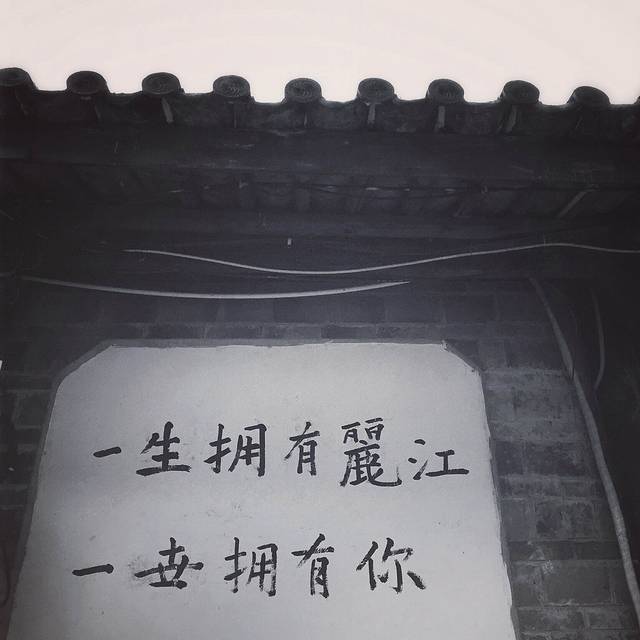 一生拥有麗江
一世拥有你